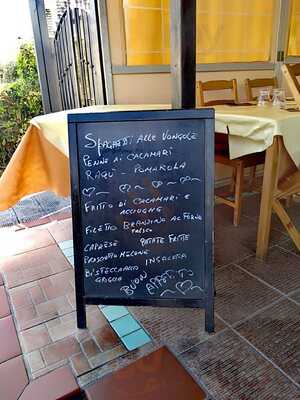 SPAGHETTI ALLE VONGOLE
PENNE AI CALAMARI
RAGU' - POMAROLA
FRITTO DI CALAMARI E
ACCIUGHE
FILETTO BRANZINO AL FORNO
FRESCO
CAPRESE PATATE FRITTE
PROSCIUTTO E MELONE
BISTECCHINA INSALATA
GRIGLIA
BUON APPETITO